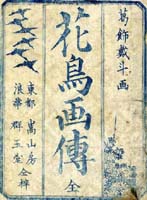 葛飾戴斗画
花鳥画傳
全
東都 嵩山房
浪華 群玉堂
全梓